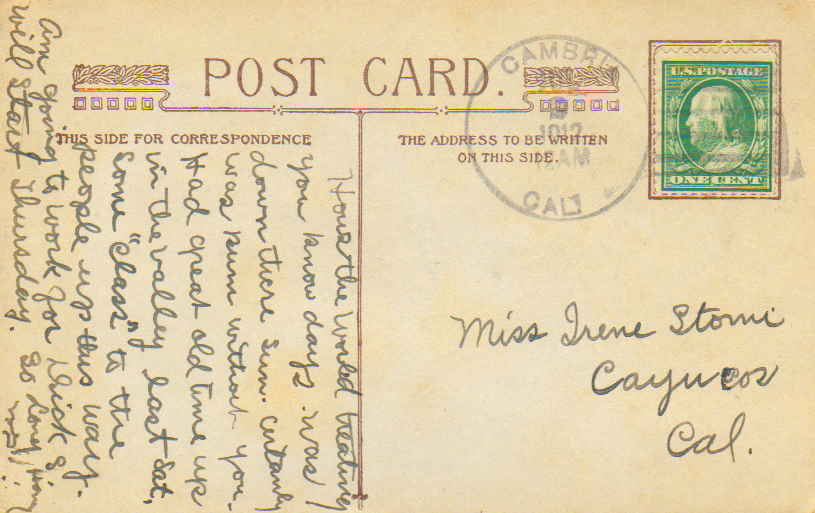 POST CARD.
THIS SIDE FOR CORRESPONDENCE
THE ADDRESS TO BE WRITTEN
ON THIS SIDE.
CAMBRI
1912
AM
CAL
U.S. POSTAGE
ONE CENT
Hows the World treating
you know days. was
down there Sun. certainly
was bum without you.
Had great old time up
in the valley last Sat.
Some "class" to the
people up this way.
Am going to work for Dick S
will start Thursday. So Long
Miss Irene Storni
Cayucos
Cal.